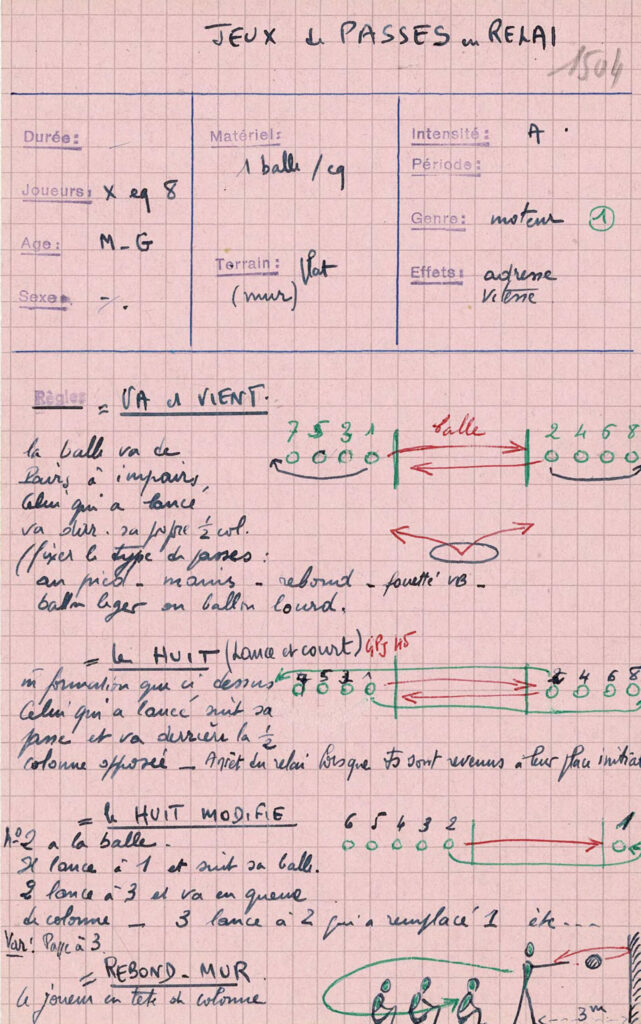 JEUX de PASSES en RELAI
1504
Durée:
Joueurs: X eq 8
Age: M-G
Sexe: -
Matériel:
1 balle / eq
Terrain: Plat
(mur)
Intensité: A
Période:
Genre: moteur 1
Effets: adresse
vitesse
Règles = VA et VIENT.
7 5 3 1 balle 2 4 6 8
la balle va de
Pairs à impairs,
Celui qui a lancé,
va derr. sa propre 1/2 col.
(fixer le type de passes:
au pied - mains - rebond - fouetté VB -
ballon léger ou ballon lourd.
= le HUIT (Lance et court) GPS 145
7 5 3 1 2 4 6 8
m̂ formation que ci dessus
Celui qui a lancé suit sa
passe et va derrière la 1/2
colonne opposée - Arrêt du relai lorsque Ts sont revenus à leur place initia
= le HUIT MODIFIE
6 5 4 3 2 1
N°2 a la balle.
Il lance à 1 et suit sa balle.
1 lance à 3 et va en queue
de colonne - 3 lance à 2 qui a remplacé 1 etc---
Var! Passe à 3
= REBOND-MUR
le joueur en tête de colonne
3m